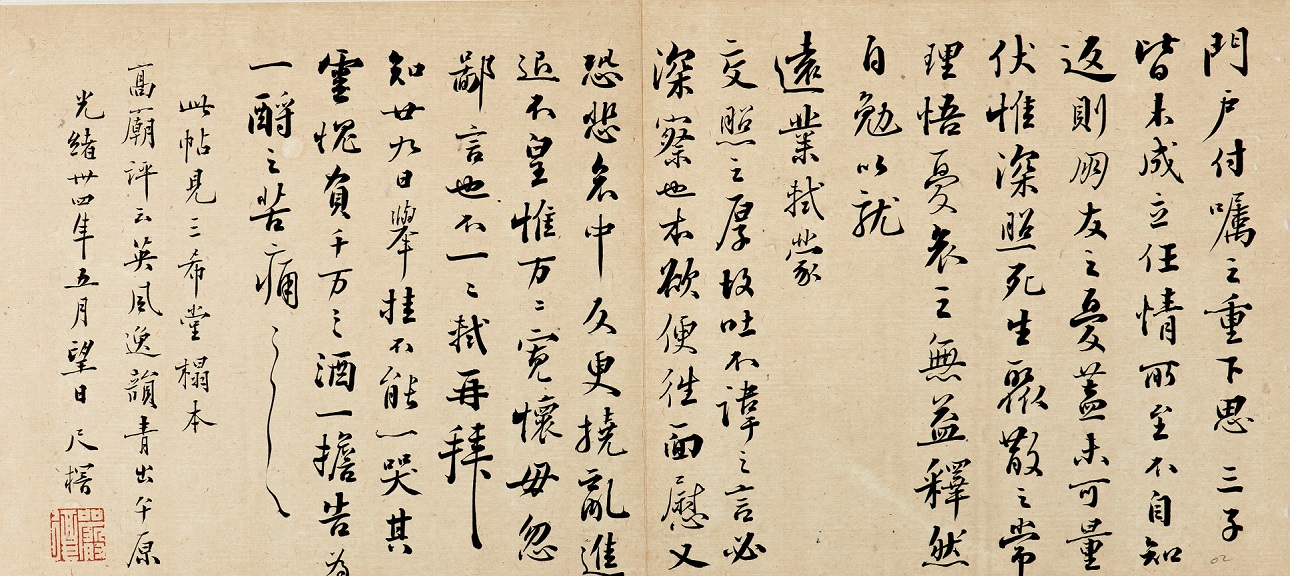 門戶付囑之重下思三子
皆未成立任情所至不自知
返則朋友之憂蓋未可量
伏惟深照死生聚散之常
理悟憂哀之無益釋然
自勉以就
遠業軾蒙
交照之厚故吐不諱之言必
深察也本欲便往面慰又
恐悲哀中反更撓亂進
退不皇惟万〻寬懷毋忽
鄙言也不一〻軾再拜
知廿九日舉掛不能一哭其
靈愧負千万〻酒一擔告為
一酹之苦痛〻〻
此帖見三希堂榻本
高廟評云英風逸韻青出平原
光緒卅四年五月望日尺